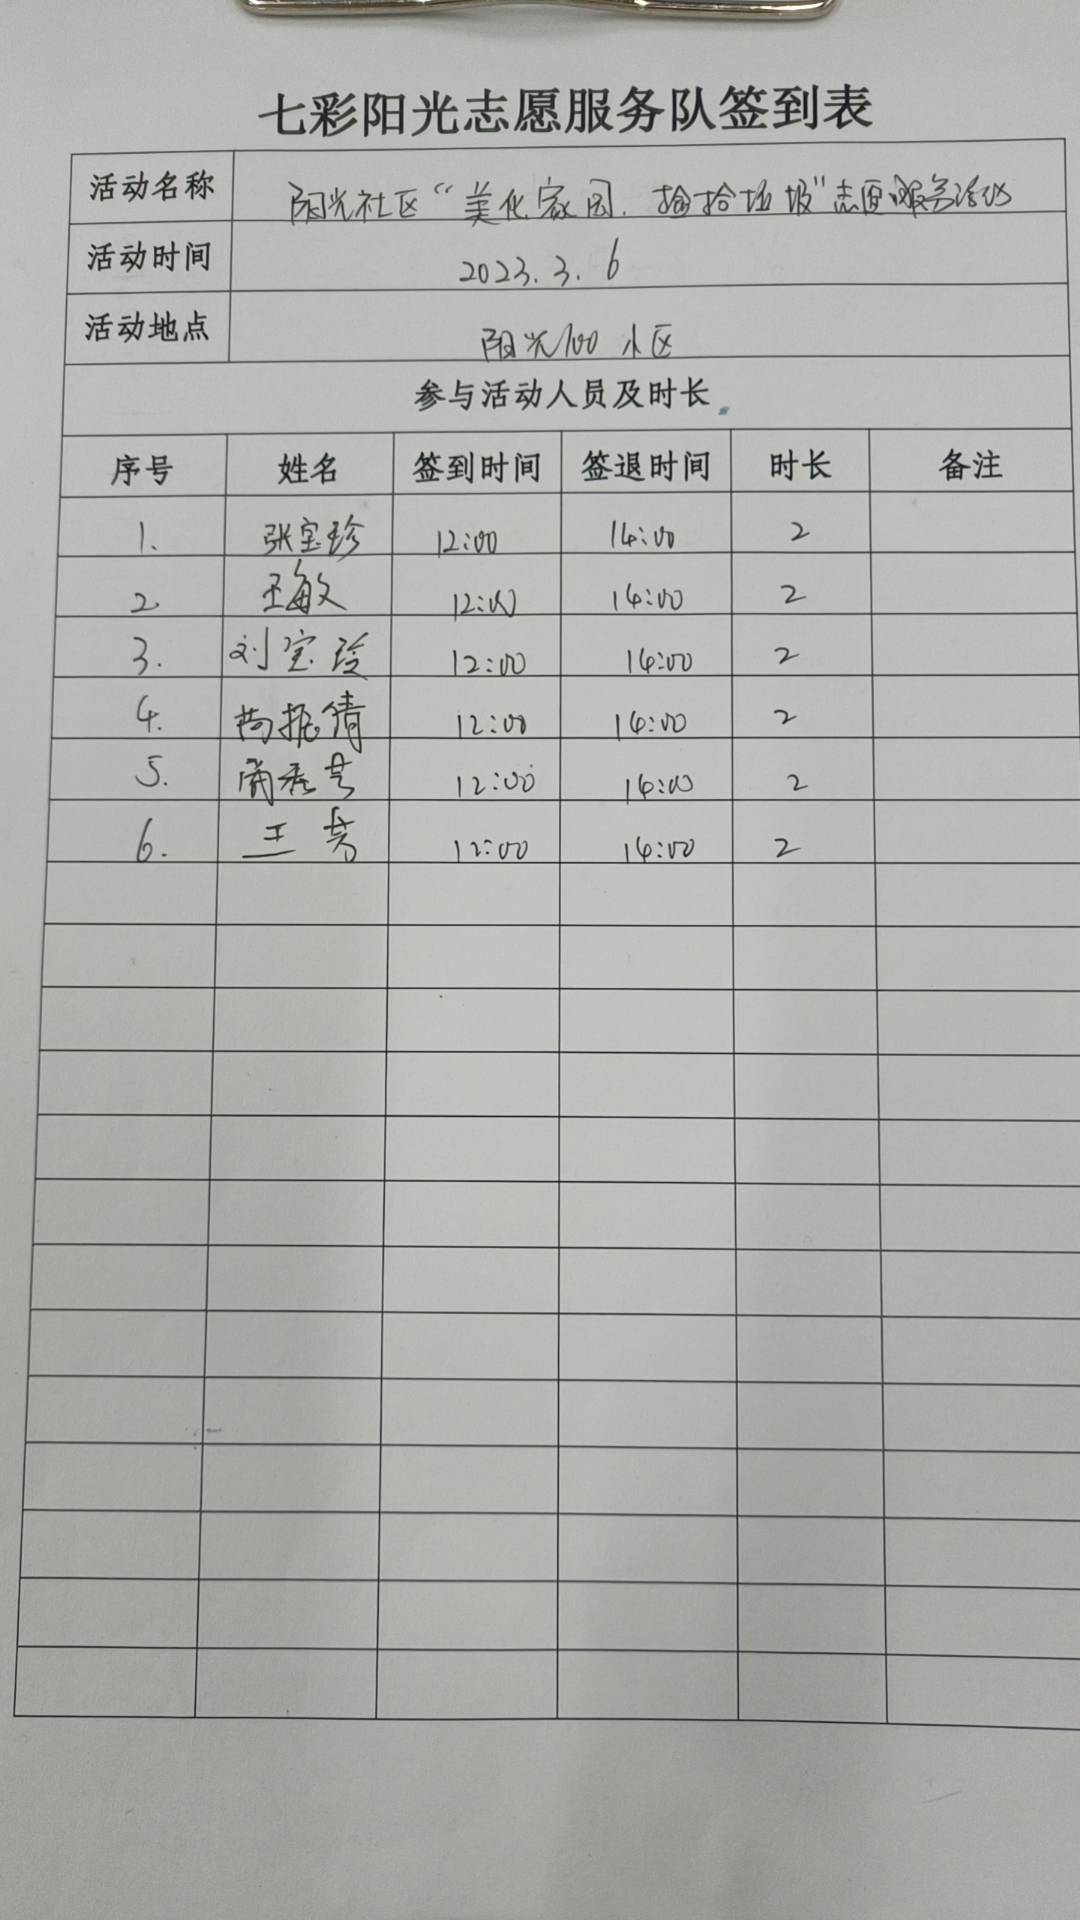 七彩阳光志愿服务队签到表
活动名称 阳光社区“美化家园、捡拾垃圾”志愿服务活动
活动时间 2023.3.6
活动地点 阳光100小区
参与活动人员及时长
序号 姓名 签到时间 签退时间 时长 备注
1. 张宝珍 12:00 14:00 2
2. 王敏 12:00 14:00 2
3. 刘宝玲 12:00 14:00 2
4. 12:00 14:00 2
5. 12:00 14:00 2
6. 王芳 12:00 14:00 2